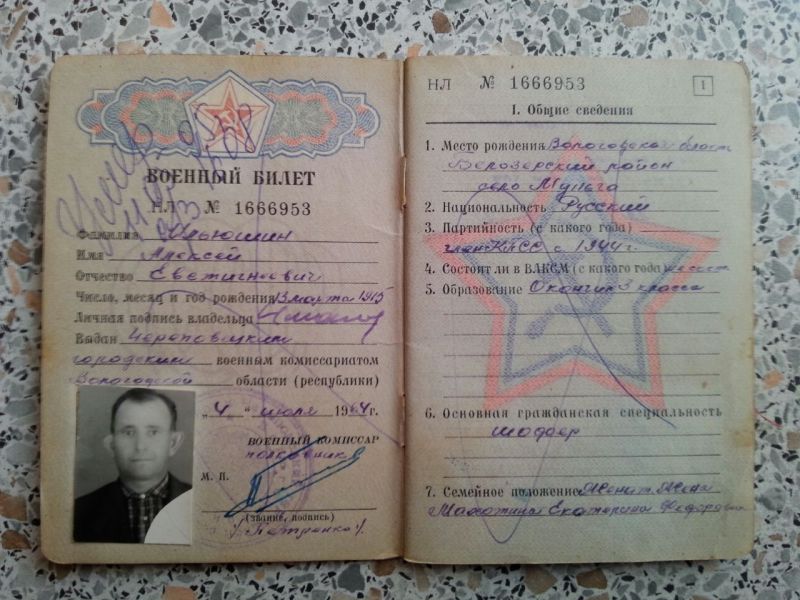 ВОЕННЫЙ БИЛЕТ
НЛ № 1666953
Фамилия Ильюшин
Имя Алексей
Отчество
Число, месяц и год рождения 13 марта 1915
Личная подпись владельца
Выдан Череповецким
городским военным комиссариатом
Вологодской области (республики)
„4" июля 1964 г.
ВОЕННЫЙ КОМИССАР
полковник
М. П.
(звание, подпись)
/Петренко/
НЛ № 1666953 1
I. Общие сведения
1. Место рождения Вологодской области
Белозерский район
село Мупога
2. Национальность Русский
3. Партийность (с какого года)
член КПСС с 1944 г.
4. Состоит ли в ВЛКСМ (с какого года) не состоит
5. Образование Окончил 3 класса
6. Основная гражданская специальность
шофер
7. Семейное положение Женат. Жена
Екатерина Федоровна